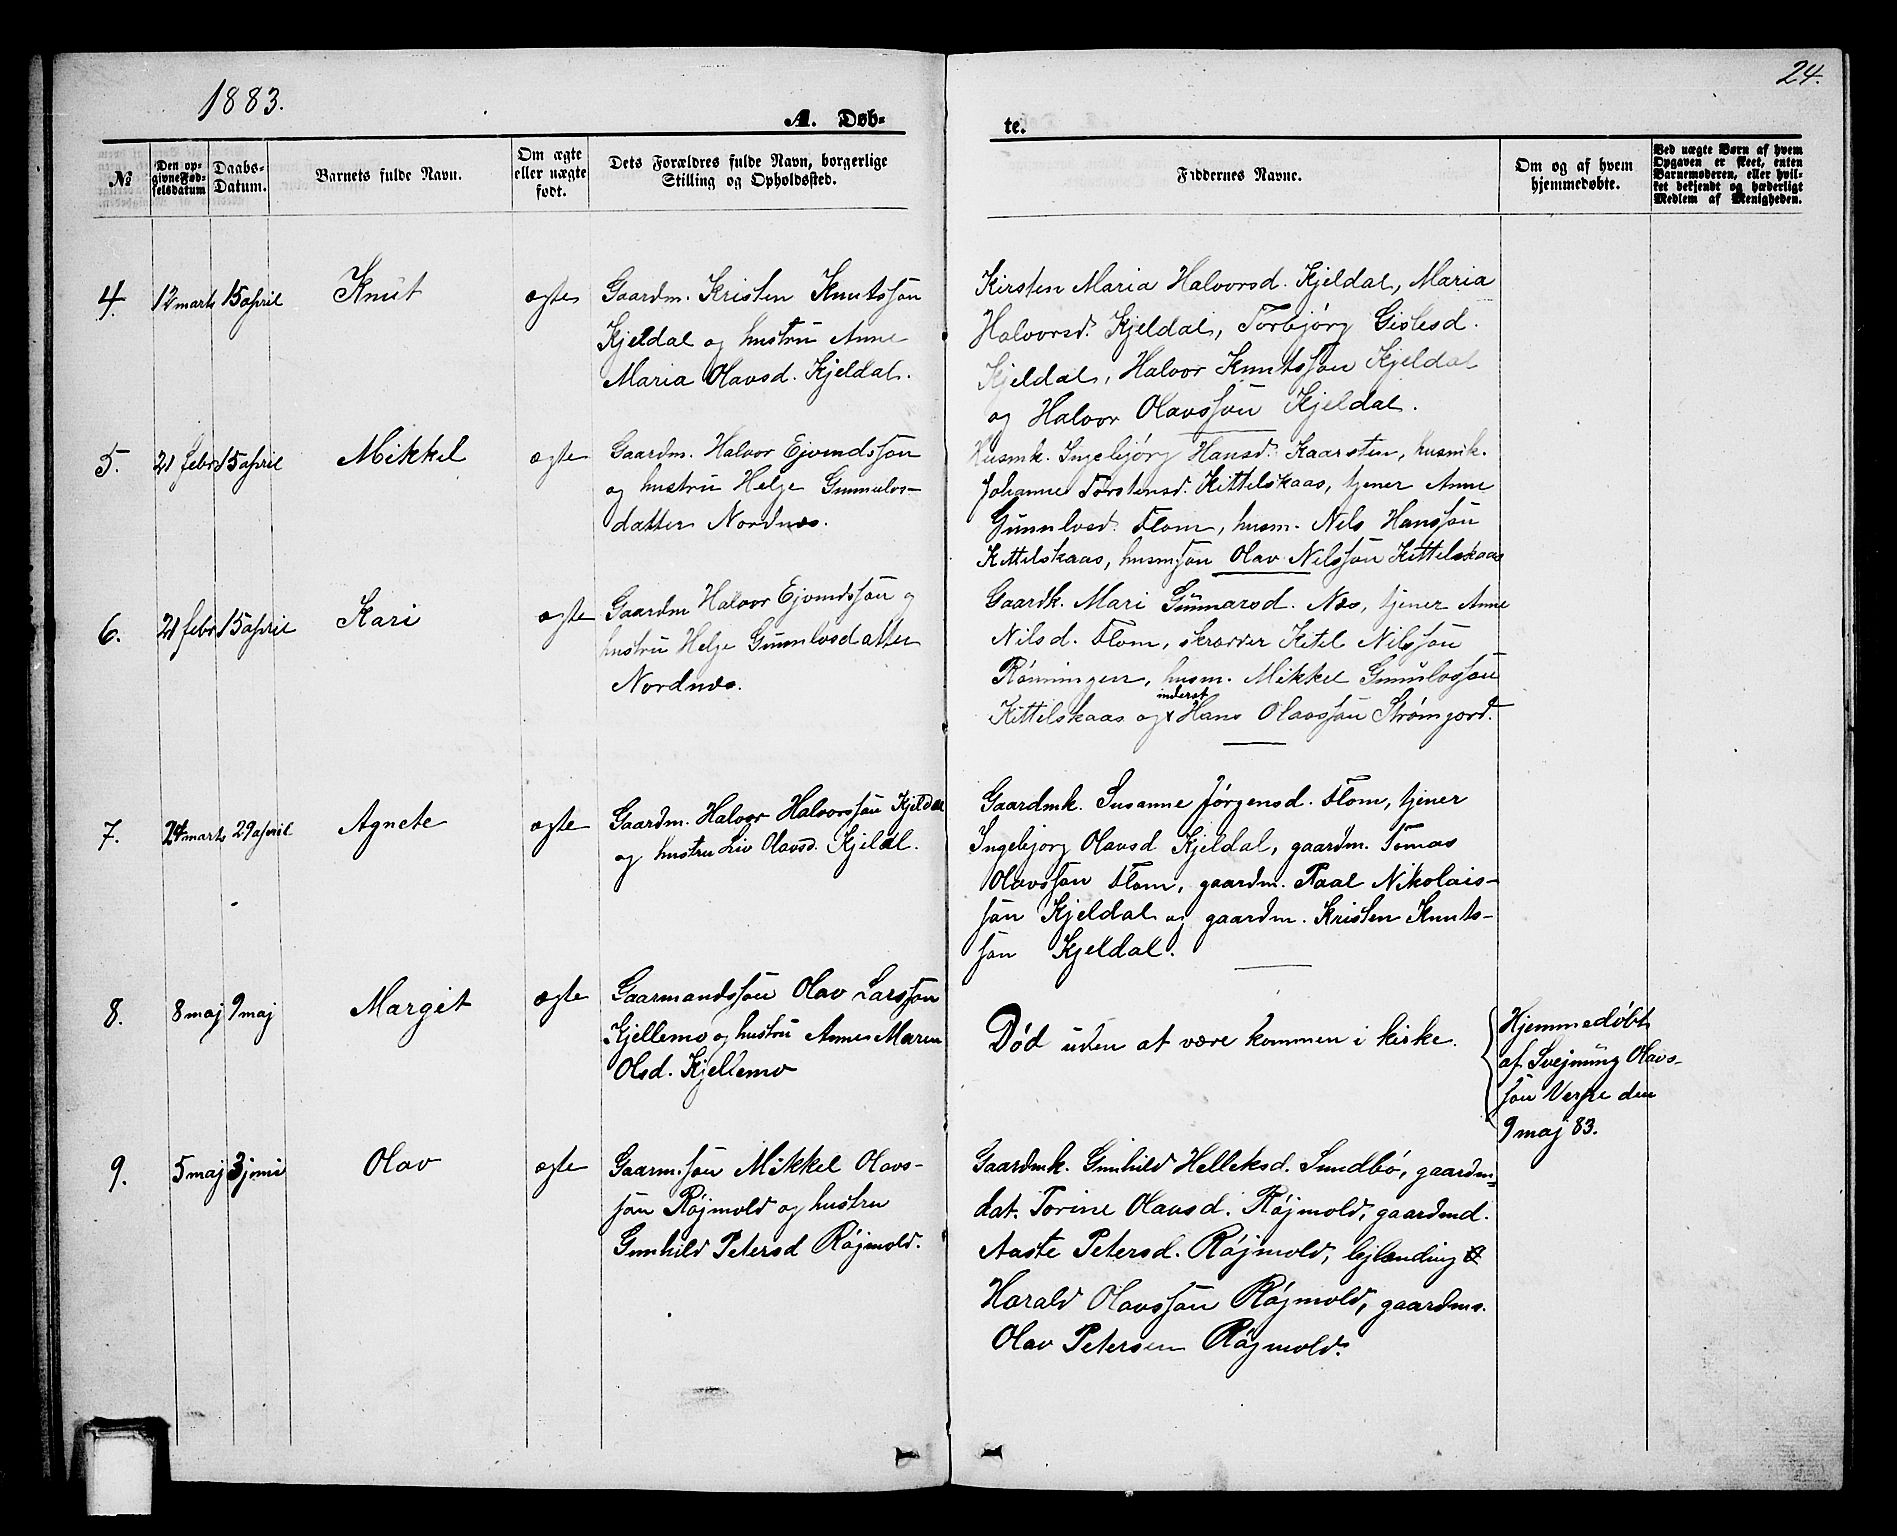 1883.
24.
A. Døb-
te.
№
Den op-
givne Fød-
selsdatum
Daabs-
Datum.
Barnets fulde Navn.
Om ægte
eller uægte
født.
Dets Forældres fulde Navn, borgerlige
Stilling og Opholdssted.
Faddernes Navne.
Om og af hvem
hjemmedøbte.
Ved uægte Børn af hvem
Opgaven er skeet, enten
Barnemoderen, eller hvil-
ket bekjendt og hæderligt
Medlem af Menigheden.
4. 12 marts 15 april Knut ægte
Gaardm. Kristen Knutsson
Kjeldal og hustru Anne
Maria Olavsd. Kjeldal.
Kirsten Maria Halvorsd. Kjeldal, Maria
Halvorsd. Kjeldal, Torbjørg Gislesd.
Kjeldal, Halvor Knutsson Kjeldal
og Halvor Olavsson Kjeldal.
5. 21 febr 15 april Mikkel ægte
Gaardm. Halvor Ejvindsson
og hustru Helge Gunnulvs-
datter Nordnæs.
Husmk. Ingebjørg Hansd. Kaarsten, husmk.
Johanne Torstensd. Kittelskaas, tjener Anne
Gunnlvsd. Flom, husm. Nils Hansson
Kittelskaas, husmson Olav Nilsson Kittelskaas
6. 21 febr 15 april Kari ægte
Gaardm Halvor Ejvindsson og
hustru Helge Gunnlvsdatter
Nordnæs.
Gaardk. Mari Gunnarsd. Næs, tjener Anne
Nilsd. Flom, skrædder Kitil Nilsson
Rønningen, husm. Mikkel Gunnulvsson
inderst
Kittelskaas og x Hans Olavsson Strømgord.
7. 24 marts 29 april Agnete ægte
Gaardm. Halvor Halvorsson Kjeldal
og hustru Liv Olavsd. Kjeldl.
Gaardmk. Susanne Jørgensd. Flom, tjener
Ingebjørg Olavsd Kjeldal, gaardm. Tomas
Olavsson Flom, gaardm. Paal Nikolais-
son Kjeldal og gaardm. Kristen Knuts-
son Kjeldal.
8. 8 maj 9 maj Margit ægte
Gaarmandsson Olav Larsson
Kjellemo og hustru Anne Maren
Olsd. Kjellemo
Død uden at være kommen i kirke.
Hjemmedøbt
af Svejnung Olavs-
son Verpe den
9 maj 83.
9. 5 maj 3 juni Olav ægte
Gaarm.son Mikkel Olavs-
son Røjmold og hustru
Gunhild Petersd Røjmold.
Gaardmk. Gunhild Helleksd. Sundbø, gaardm=
dat. Torine Olavsd. Røjmold, gaardmd.
Aaste Petersd. Røjmold, lejlænding
Harald Olavsson Røjmold, gaardms.
Olav Petersen Røjmold.